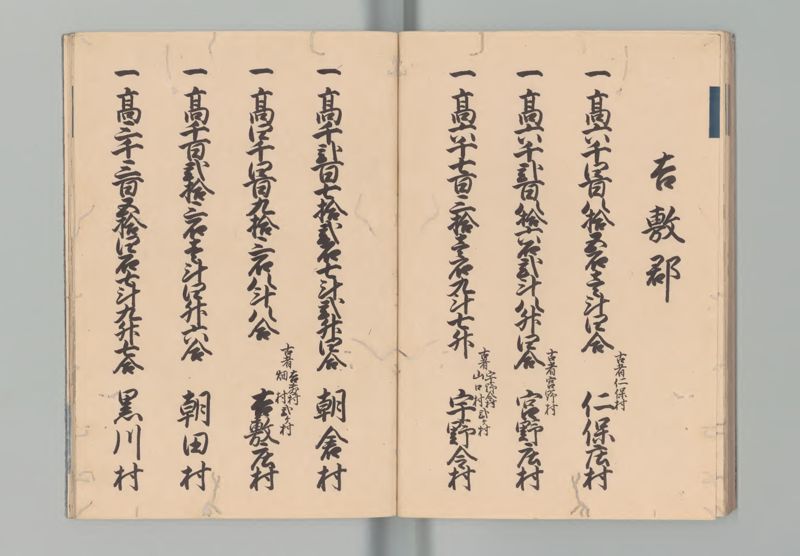 吉敷郡
一高六千四百八拾五石壱斗四合
古者仁保村
仁保庄村
一高六千弐百八拾六石弐斗八升四合
古者宮野村
宮野庄村
一高六千七百三拾壱石九斗七升
古者宇野令村
山口村弐ケ村
宇野令村
一高千弐百七拾弐石七斗弐升四合
朝倉村
一高四千四百九拾三石八斗八合
古者吉敷村
畑村弐ケ村
吉敷庄村
一高千百弐拾三石壱斗四升六合
朝田村
一高三千三百五拾四石七斗九升七合
黒川村